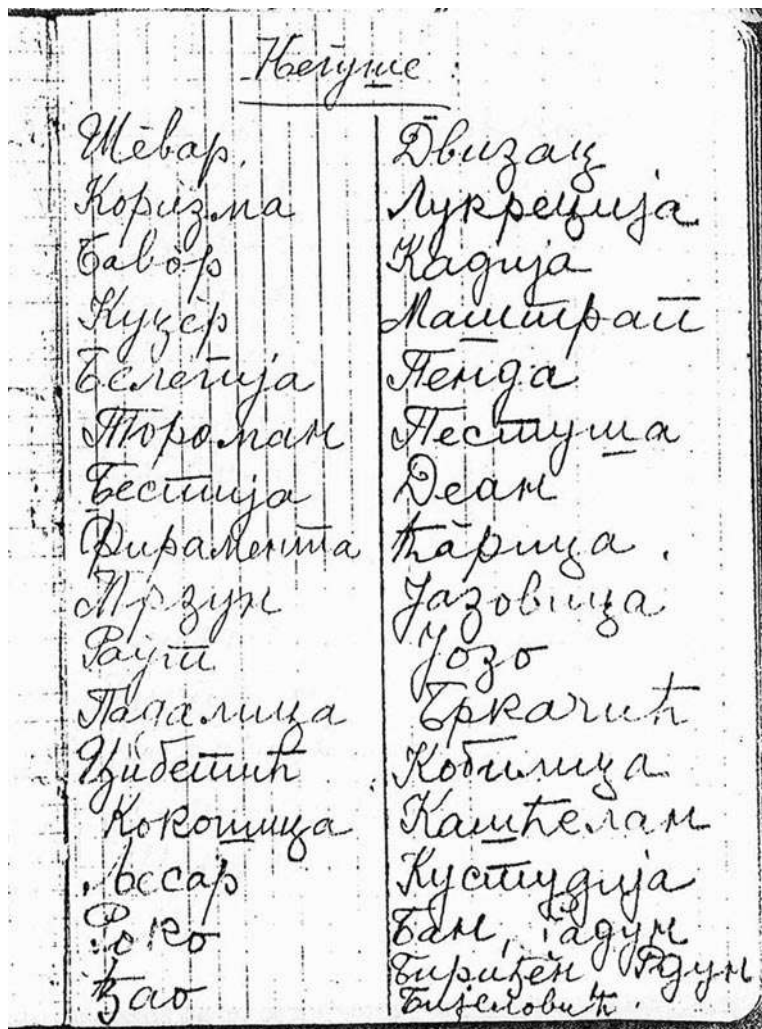 Његуше
Шевар.
Коризма
Бавор
Куцер
Белегија
Тороман
Бестија
Фирамента
Мрзун
Раут
Падалица
Цибетић
Кокошица
Љесар
Роко
Ђао
Двизац
Лукреција
Кадија
Маштрап
Пенда
Пестуша
Деан
Ћарица.
Јазовица
Јозо
Бркачић
Кобилица
Кашћелан
Кустудија
Бан, Радун
Бириђен
Бијеловић.